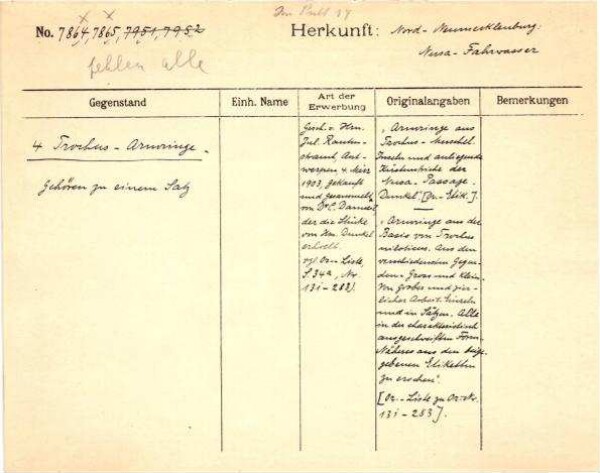 No. 7864, 7865, 7951, 7952
fehlen alle
Herkunft: Nord-Neumecklenburg.
Nusa-Fahrwasser
Gegenstand
Einh. Name
Art der Erwerbung
Originalangaben
Bemerkungen
4 Trochus-Armringe.
Gehören zu einem Satz
Gesch. v. Hrn.
Jul. Rauten-
strauch, Ant-
werpen 4. März
1903, gekauft
und gesammelt
von Dr. C. Danneil
der die Stücke
von Hrn. Dunkel
erhielt.
vgl. Orn. Liste
S 34a, Nr.
131-283).
"Armringe aus
Trochus-Muschel.
Inseln und anliegende
Küstenstriche der
Nusa-Passage.
Dunkel" [Or.-Etik.].
"Armringe aus der
Basis von Trochus
niloticus. Aus den
verschiedensten Gegen-
den. Gross und Klein.
Von grober und zier-
licher Arbeit. Einzeln
und in Sätzen. Alle
in der charakteristisch
ausgeschweiften Form.
Näheres aus den beige-
gebenen Etiketten
zu ersehen".
[Or.-Liste zu Or. No.
131-283].